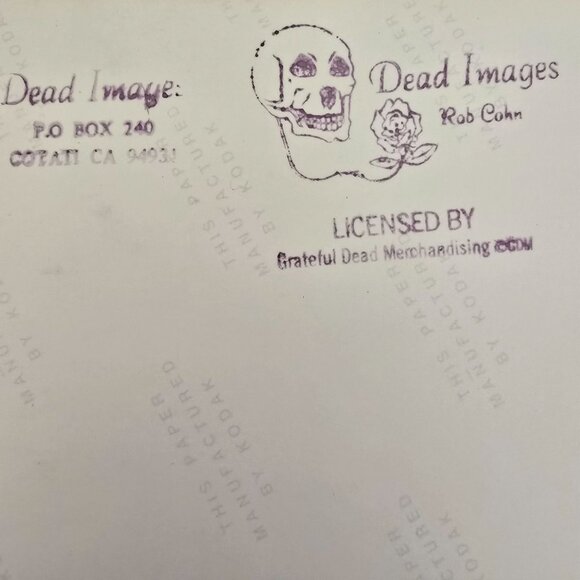 Dead Images
Rob Cohn
Dead Image
P.O BOX 240
COTATI CA 94931
LICENSED BY
Grateful Dead Merchandising ©GDM
THIS PAPER
MANUFACTURED
BY KODAK
THIS PAPER
MANUFACTURED
BY KODAK
MANUFACTURED
BY KODAK
THIS PAPER
MANUFACTURED
BY KODAK
PAPER
MANUFACTURED
BY KODAK